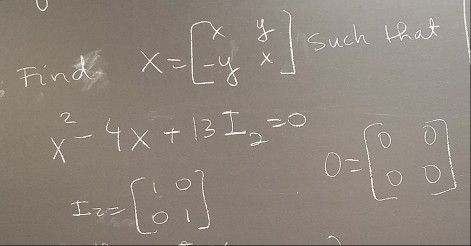 Find X = [x y; -y x] such that
x² - 4x + 13 I₂ = 0
I₂ = [1 0; 0 1]
0 = [0 0; 0 0]